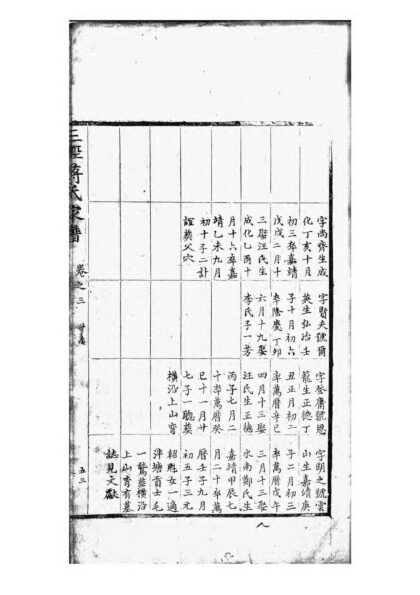 字尚齊生成
化丁亥十月
初三卒嘉靖
戊戌二月十
三娶汪氏生
成化乙酉十
月十六卒嘉
靖乙未九月
初十子二計
誼葬父穴
字賢夫號爾
英生弘治壬
子十月初六
卒隆慶丁卯
六月十九娶
李氏子一芳
字登庸號恩
龍生正德丁
丑正月初二
卒萬曆辛巳
四月十三娶
汪氏生正德
丙子七月二
十卒萬曆癸
巳十一月廿
七子一聰葬
橫沿上山灣
字明之號雲
山生嘉靖庚
子二月初三
卒萬曆戊午
三月十三娶
水南鄭氏生
嘉靖甲辰七
月二十卒萬
曆壬子九月
初五子三元
紹魁女一適
泮塘貢士毛
一鷺葬橫沿
上山灣有墓
誌見文獻
三逕蔣氏家譜
卷之三
世系
五三